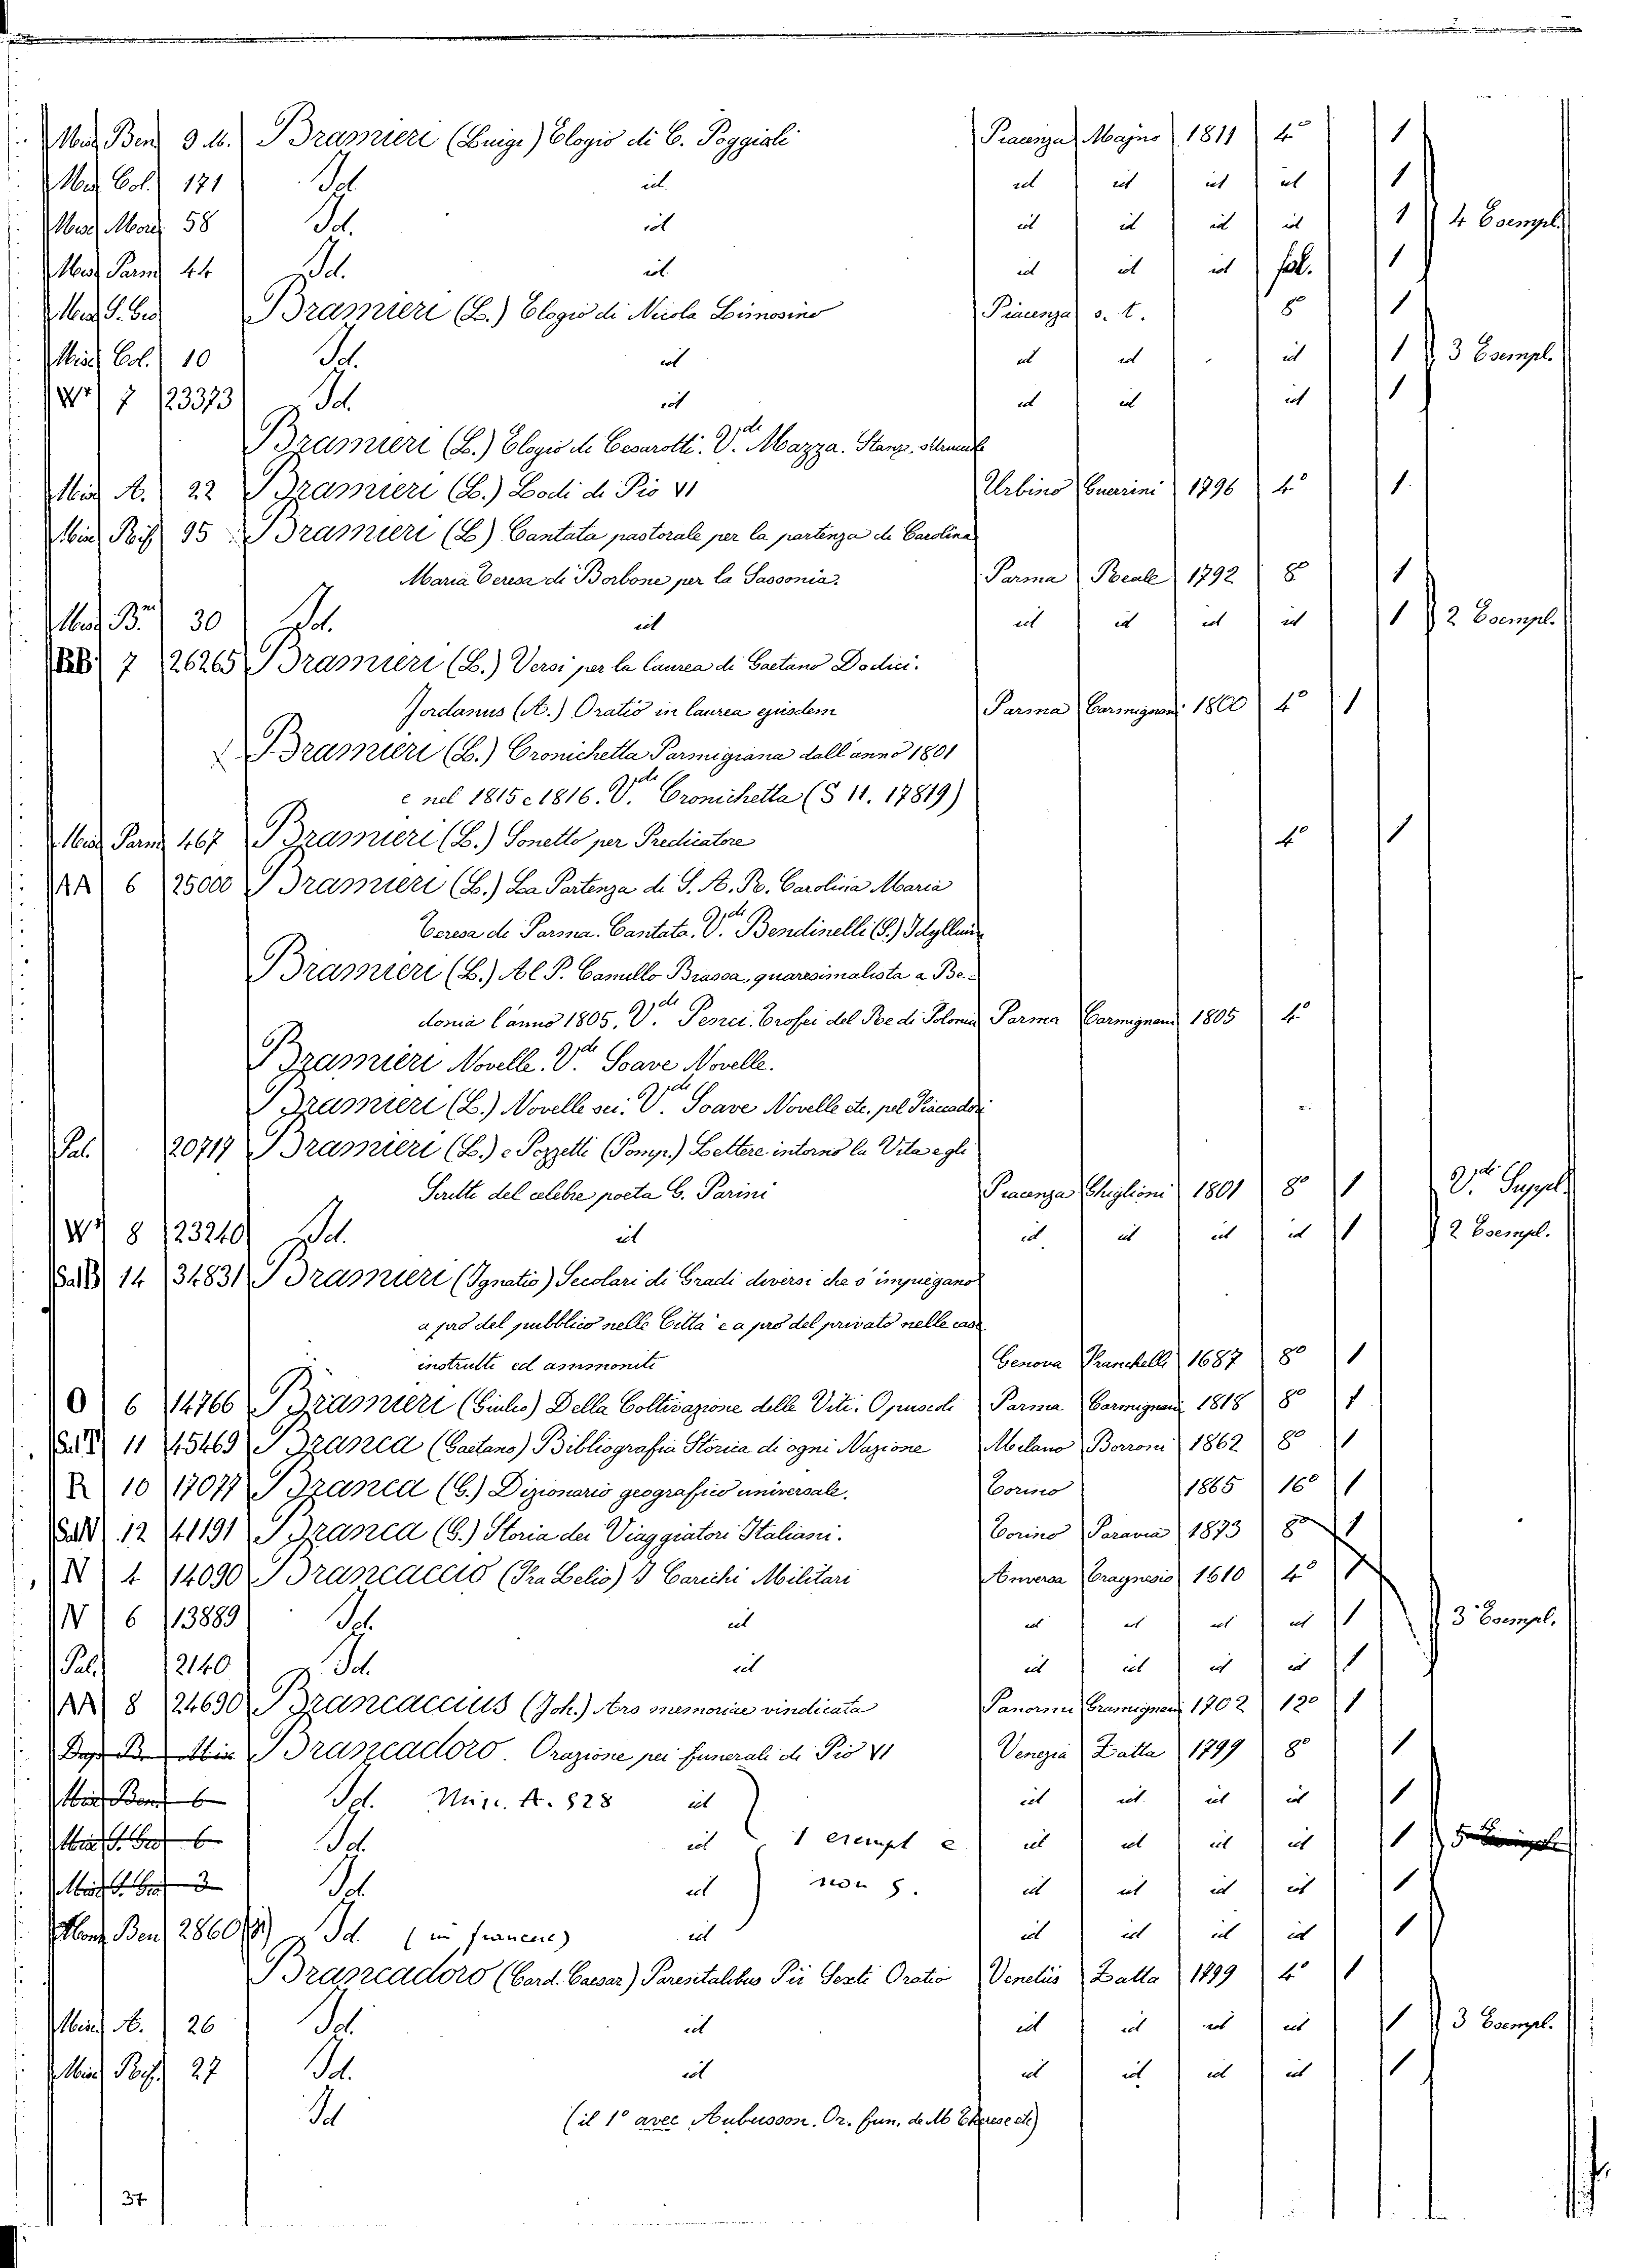 Misc Ben 9 4. Bramieri (Luigi) Elogio di C. Poggiali Piacenza Majno 1811 4° 1
Misc Col. 171 Id. id. id id id id 1
Misc Mor 58 Id. id id id id id 1 4 Esempl.
Misc Parm 44 Id. id. id id id fol. 1
Misc S. Gio Bramieri (L.) Elogio di Nicola Limosino Piacenza s. t. 8° 1
Misc Col. 10 Id. id id id id 1 3 Esempl.
W* 7 23373 Id. id id id id 1
Bramieri (L.) Elogio di Cesarotti. V.di Mazza. Stanze
Misc A. 22 Bramieri (L.) Lodi di Pio VI Urbino Guerrini 1796 4° 1
Misc Ris 95 Bramieri (L) Cantata pastorale per la partenza di Carolina
Maria Teresa di Borbone per la Sassonia. Parma Reale 1792 8° 1
Misc B.ni 30 Id. id id id id id 1 2 Esempl.
BB 7 26265 Bramieri (L.) Versi per la laurea di Gaetano Dodici.
Jordanus (A.) Oratio in laurea ejusdem Parma Carmignani 1800 4° 1
Bramieri (L.) Cronichetta Parmigiana dall'anno 1801
e nel 1815 e 1816. V.di Cronichetta (S 11. 17819)
Misc Parm 467 Bramieri (L.) Sonetto per Predicatore 4° 1
AA 6 25000 Bramieri (L.) La Partenza di S. A. R. Carolina Maria
Teresa di Parma. Cantata. V.di Bendinelli (S.) Idyllium
Bramieri (L.) Al P. Camillo Brassa, quaresimalista a Be-
donia l'anno 1805. V.di Penci. Trofei del Re di Polonia Parma Carmignani 1805 4°
Bramieri Novelle. V.di Soave Novelle.
Bramieri (L.) Novelle sei. V.di Soave Novelle etc. pel Piacadori
Pal. 20717 Bramieri (L.) e Pozzetti (Pomp.) Lettere intorno la Vita e gli
Scritti del celebre poeta G. Parini Piacenza Ghiglioni 1801 8° 1 V.di Suppl.
W* 8 23240 Id. id id id id id 1 2 Esempl.
Sal B 14 34831 Bramieri (Ignatio) Secolari di Gradi diversi che s'impiegano
a pro del pubblico nelle Città e a pro del privato nelle case
instrutti ed ammoniti Genova Franchelli 1687 8° 1
O 6 14766 Bramieri (Giulio) Della Coltivazione delle Viti. Opuscoli Parma Carmignani 1818 8° 1
11 45469 Branca (Gaetano) Bibliografia Storica di ogni Nazione Milano Borroni 1862 8° 1
R 10 17077 Branca (G.) Dizionario geografico universale. Torino 1865 16° 1
12 41191 Branca (G.) Storia dei Viaggiatori Italiani. Torino Paravia 1873 8° 1
N 4 14090 Brancaccio (Fra Lelio) I Carichi Militari Anversa Trognesio 1610 4° 1
N 6 13889 Id. id id id id id 1 3 Esempl.
Pal. 2140 Id. id id id id id 1
AA 8 24690 Brancaccius (Joh.) Ars memoriae vindicata Panormi Gramignani 1702 12° 1
Misc Brancadoro. Orazione pei funerali di Pio VI Venezia Zatta 1799 8° 1
Misc Ben 6 Id. Misc. A. 828 id id id id id 1
Misc S. Gio 6 Id. id 1 esempl e id id id id 1
Misc S. Gio 3 Id. id non 5. id id id id 1
Ben 2860 Id. (in francese) id id id id id 1
Brancadoro (Card. Caesar) Parentalibus Pii Sexti Oratio Venetiis Zatta 1799 4° 1
Misc A. 26 Id. id id id id id 1 3 Esempl.
Misc Ris. 27 Id. id id id id id 1
Id (il 1° avec Aubusson. Or. fun. de M Therese etc)
37